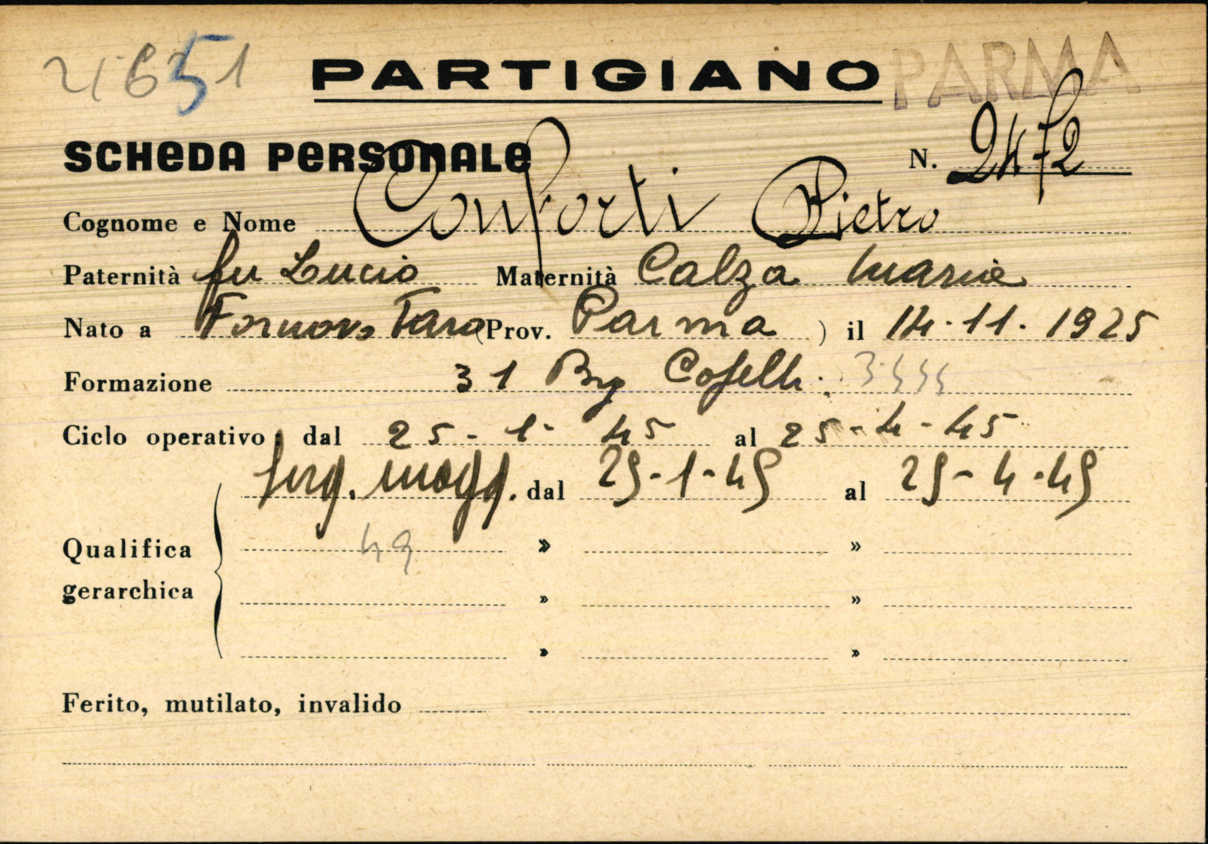 4651 PARTIGIANO PARMA
SCHEDA PERSONALE N. 2472
Cognome e Nome Conforti Pietro
Paternità fu Lucio Maternità Calza Maria
Nato a Fornovo Taro (Prov. Parma) il 14.11.1925
Formazione 31 Brg Copelli.
Ciclo operativo: dal 25-1-45 al 25-4-45
Serg. magg. dal 25-1-45 al 25-4-45
Qualifica gerarchica
49 » »
» »
» »
Ferito, mutilato, invalido